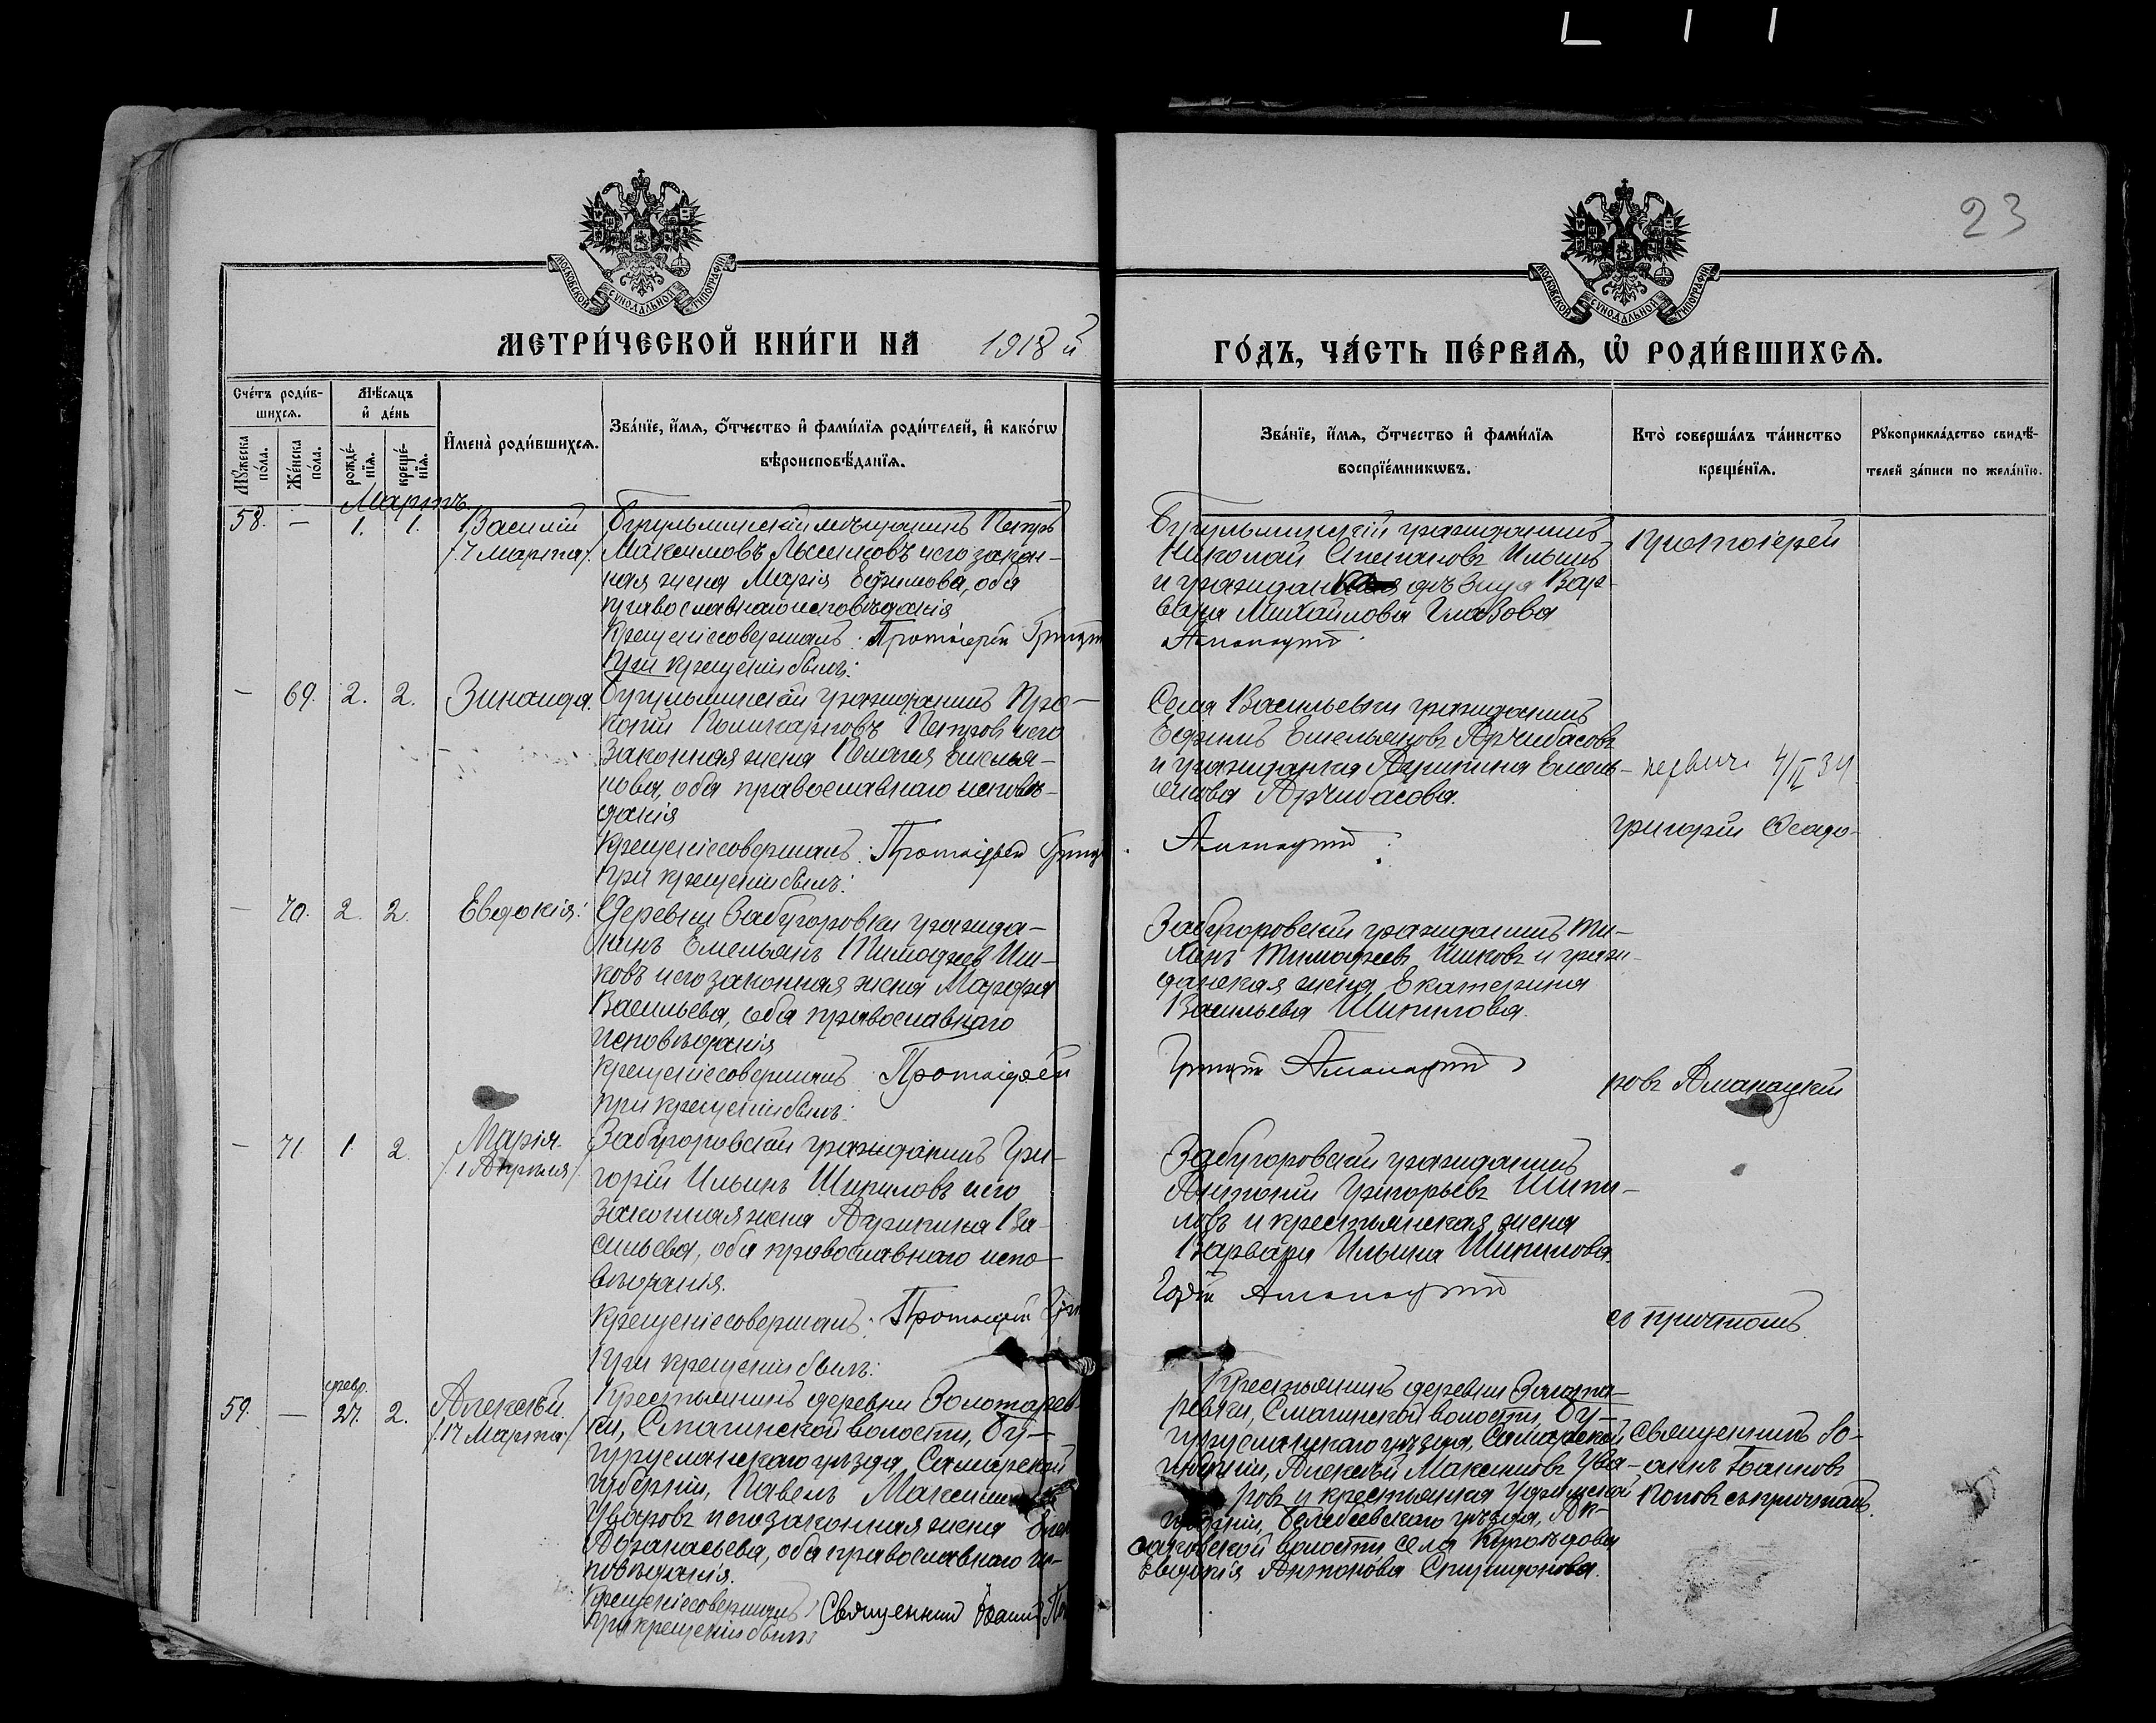 23
МОСКОВСКОЙ СѴНОДАЛЬНОЙ ТИПОГРАФІИ
МОСКОВСКОЙ СѴНОДАЛЬНОЙ ТИПОГРАФІИ
МЕТРИ́ЧЕСКОЙ КНИ́ГИ НА 1918 й
ГО́ДЪ, ЧА́СТЬ ПЕ́РВАѦ, Ѡ҆ РОДИ́ВШИХСѦ.
Сче́тъ роди́в-
шихсѧ.
Мꙋ́жеска по́ла.
Же́нска по́ла.
Мѣ́сѧцъ
и҆ де́нь
рожде́-
нїѧ.
креще́-
нїѧ.
И҆мена̀ роди́вшихсѧ.
Зва́нїе, и҆́мѧ, ѻ҆́тчество и҆ фами́лїѧ роди́телей, и҆ како́гѡ
вѣроисповѣ́данїѧ.
Зва́нїе, и҆́мѧ, ѻ҆́тчество и҆ фами́лїѧ
воспрїе́мникѡвъ.
Кто̀ соверша́лъ та́инство
креще́нїѧ.
Рꙋкоприкла́дство свидѣ́-
телей за́писи по жела́нїю.
Мартъ
58. — 1. 1. Василій
/7 марта/.
Бугульминскій мѣщанинъ Петръ
Максимовъ и его закон-
ная жена Марія Ефимова, оба
православнаго исповѣданія
Крещеніе совершалъ: Протоіерей
При крещеніи былъ:
Бугульминскій гражданинъ
Николай Степановъ Ильинъ
и дѣвица Вар-
вара Михайлова Глазова
Аманацкій
Протоіерей
— 69. 2. 2. Зинаида.
Бугульминскій гражданинъ Про-
копій Петровъ и его
законная жена Пелагия Емелья-
нова, оба православнаго исповѣ-
данія
Крещеніе совершалъ: Протоіерей
При крещеніи былъ:
Села Васильевки гражданинъ
Ефимъ Емельяновъ Арчибасовъ
и гражданка Агрипина Емель-
янова Арчибасова.
Аманацкій
4/II 34
Григорій
— 70. 2. 2. Евдокія.
Деревни Забугоровки гражда-
нинъ Емельянъ Тимофеев Ши-
ковъ и его законная жена Марфа
Васильева, оба православнаго
исповѣданія
Крещеніе совершалъ Протоіерей
При крещеніи былъ:
Забугоровскій гражданинъ Ти-
хонъ Тимофеевъ Шиковъ и граж-
данская жена Екатерина
Васильева Шипилова.
Аманацкій
ровъ Аманацкій
— 71. 1. 2. Марія.
/1 Апрѣля/
Забугоровскій гражданинъ Гри-
горій Ильинъ Шипиловъ и его
законная жена Агрипина Ва-
сильева, оба православнаго испо-
вѣданія.
Крещеніе совершалъ: Протоіерей
При крещеніи былъ:
Забугоровскій гражданинъ
Антоній Григорьевъ Шипи-
ловъ и крестьянская жена
Варвара Ильина Шипилова.
Аманацкій
съ причтомъ.
59. — февр. 27. 2. Алексѣй.
/17 Марта/
Крестьянинъ деревни Золотарев-
ки, Смагинской волости, Бу-
гурусланскаго уѣзда, Самарской
губерніи, Павелъ Максимовъ
Уваровъ и его законная жена
Афанасьева, оба православнаго ис-
повѣданія.
Крещеніе совершалъ: Священникъ Іоаннъ
При крещеніи былъ:
Крестьянинъ деревни Золота-
ревки, Смагинской волости, Бу-
гурусланскаго уѣзда, Самарской
губерніи, Алексѣй Максимовъ Ува-
ровъ и крестьянка Уфимской
губерніи, Белебеевскаго уѣзда,
волости села Куроѣдова
Евдокія Антонова Спиридонова.
Священникъ Іо-
аннъ Іоанновъ
Поповъ съ причтомъ.